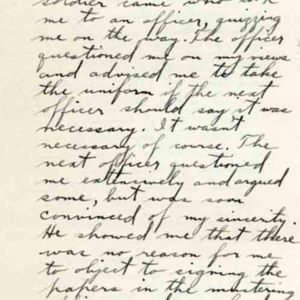 soldier came who took
me to an officer, quizzing
me on the way. The officer
questioned me on my views
and advised me to take
the uniform if the next
officer should say it was
necessary. It wasn't
necessary of course. The
next officer questioned
me extensively and argued
some, but was soon
convinced of my sincerity.
He showed me that there
was no reason for me
to object to signing the
papers in the mustering